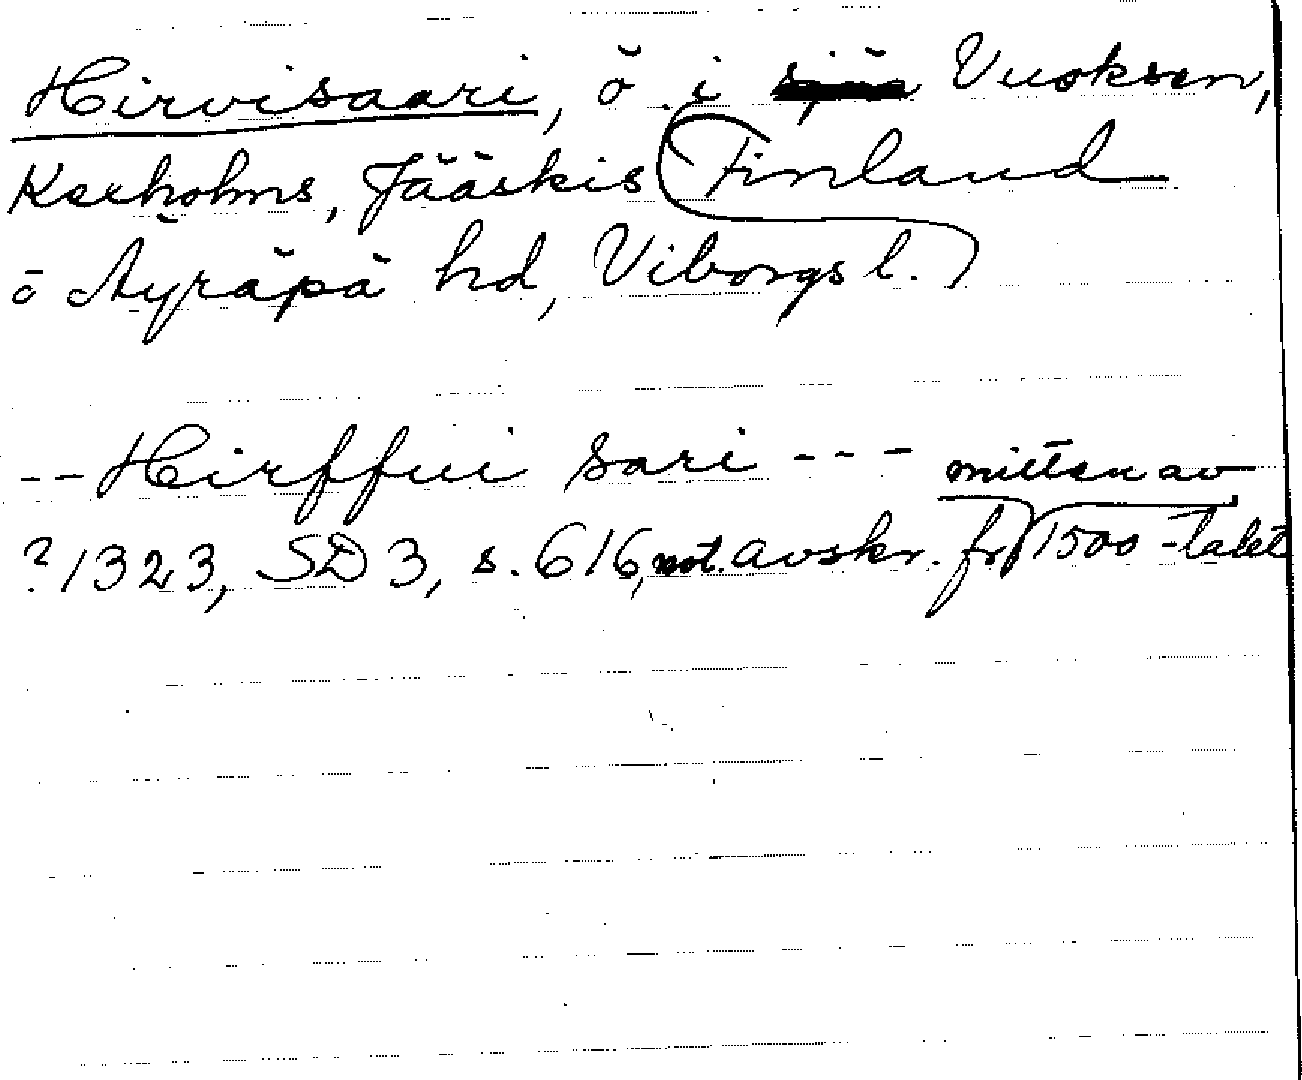 Hirvisaari, ö i Vuoksen,
Kexholms, Jääskis Finland
o Äyräpä hd, Viborgs l.
-- Hirffui sari --- mitten av
? 1323, SD 3, s. 616, not. avskr. fr 1500-talet